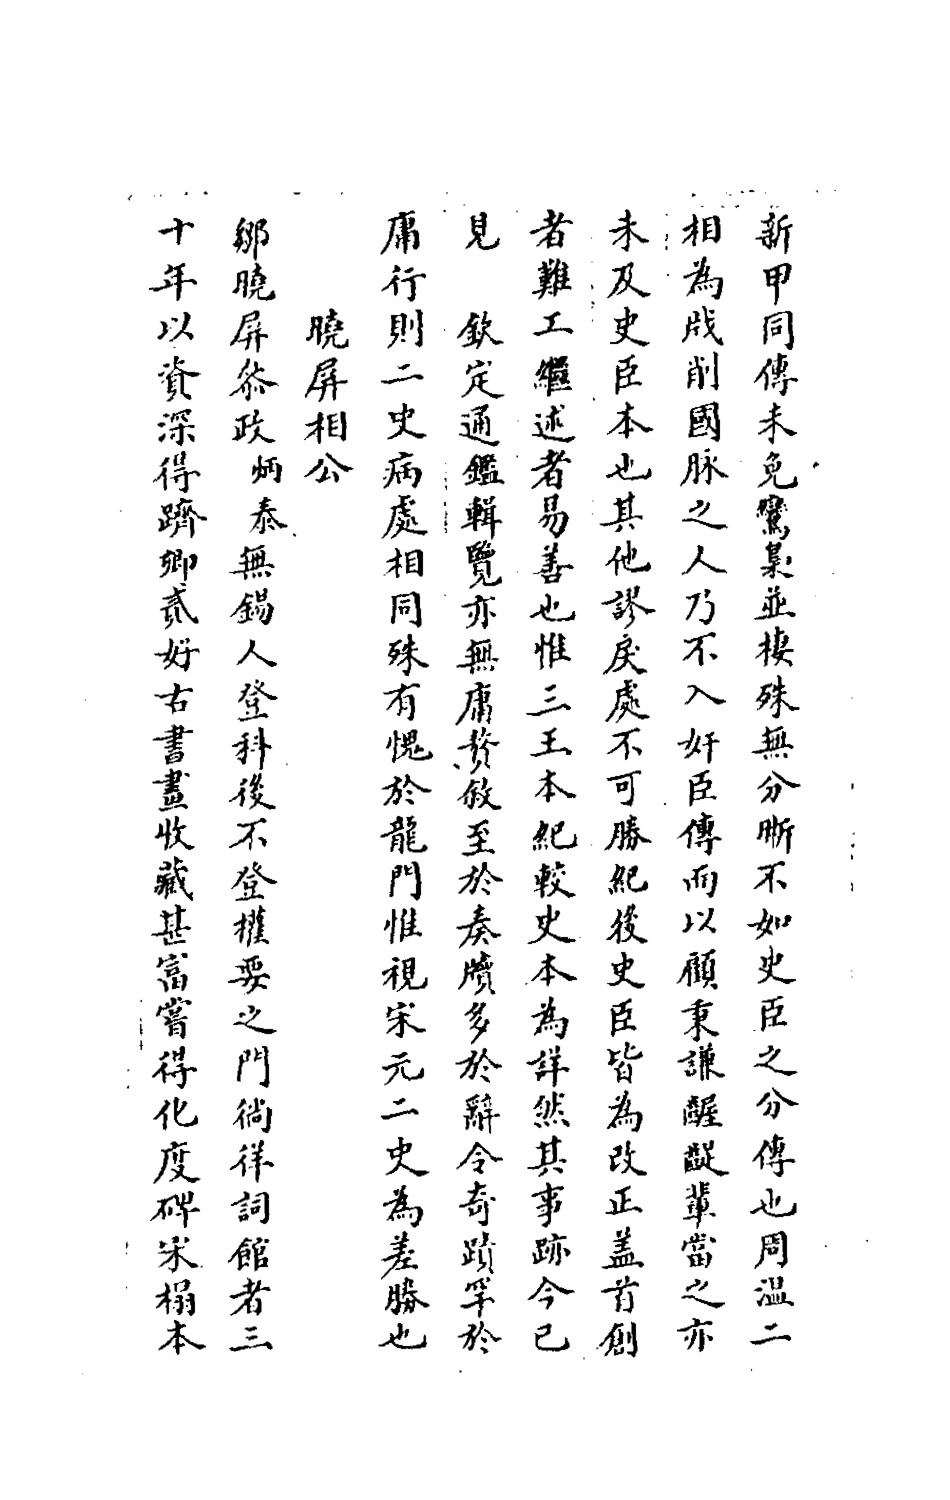 新甲同傳未免鸞梟並棲殊無分晰不如史臣之分傳也周溫二
相為戕削國脉之人乃不入奸臣傳而以顧秉謙齷齪輩當之亦
未及史臣本也其他謬戾處不可勝紀後史臣皆為改正盖首創
者難工繼述者易善也惟三王本紀較史本為詳然其事跡今已
見 欽定通鑑輯覽亦無庸贅敘至於奏牘多於辭令奇蹟罕於
庸行則二史病處相同殊有愧於龍門惟視宋元二史為差勝也
曉屏相公
鄒曉屏叅政炳泰無錫人登科後不登權要之門徜徉詞館者三
十年以資深得躋卿貳好古書畫收藏甚富嘗得化度碑宋榻本